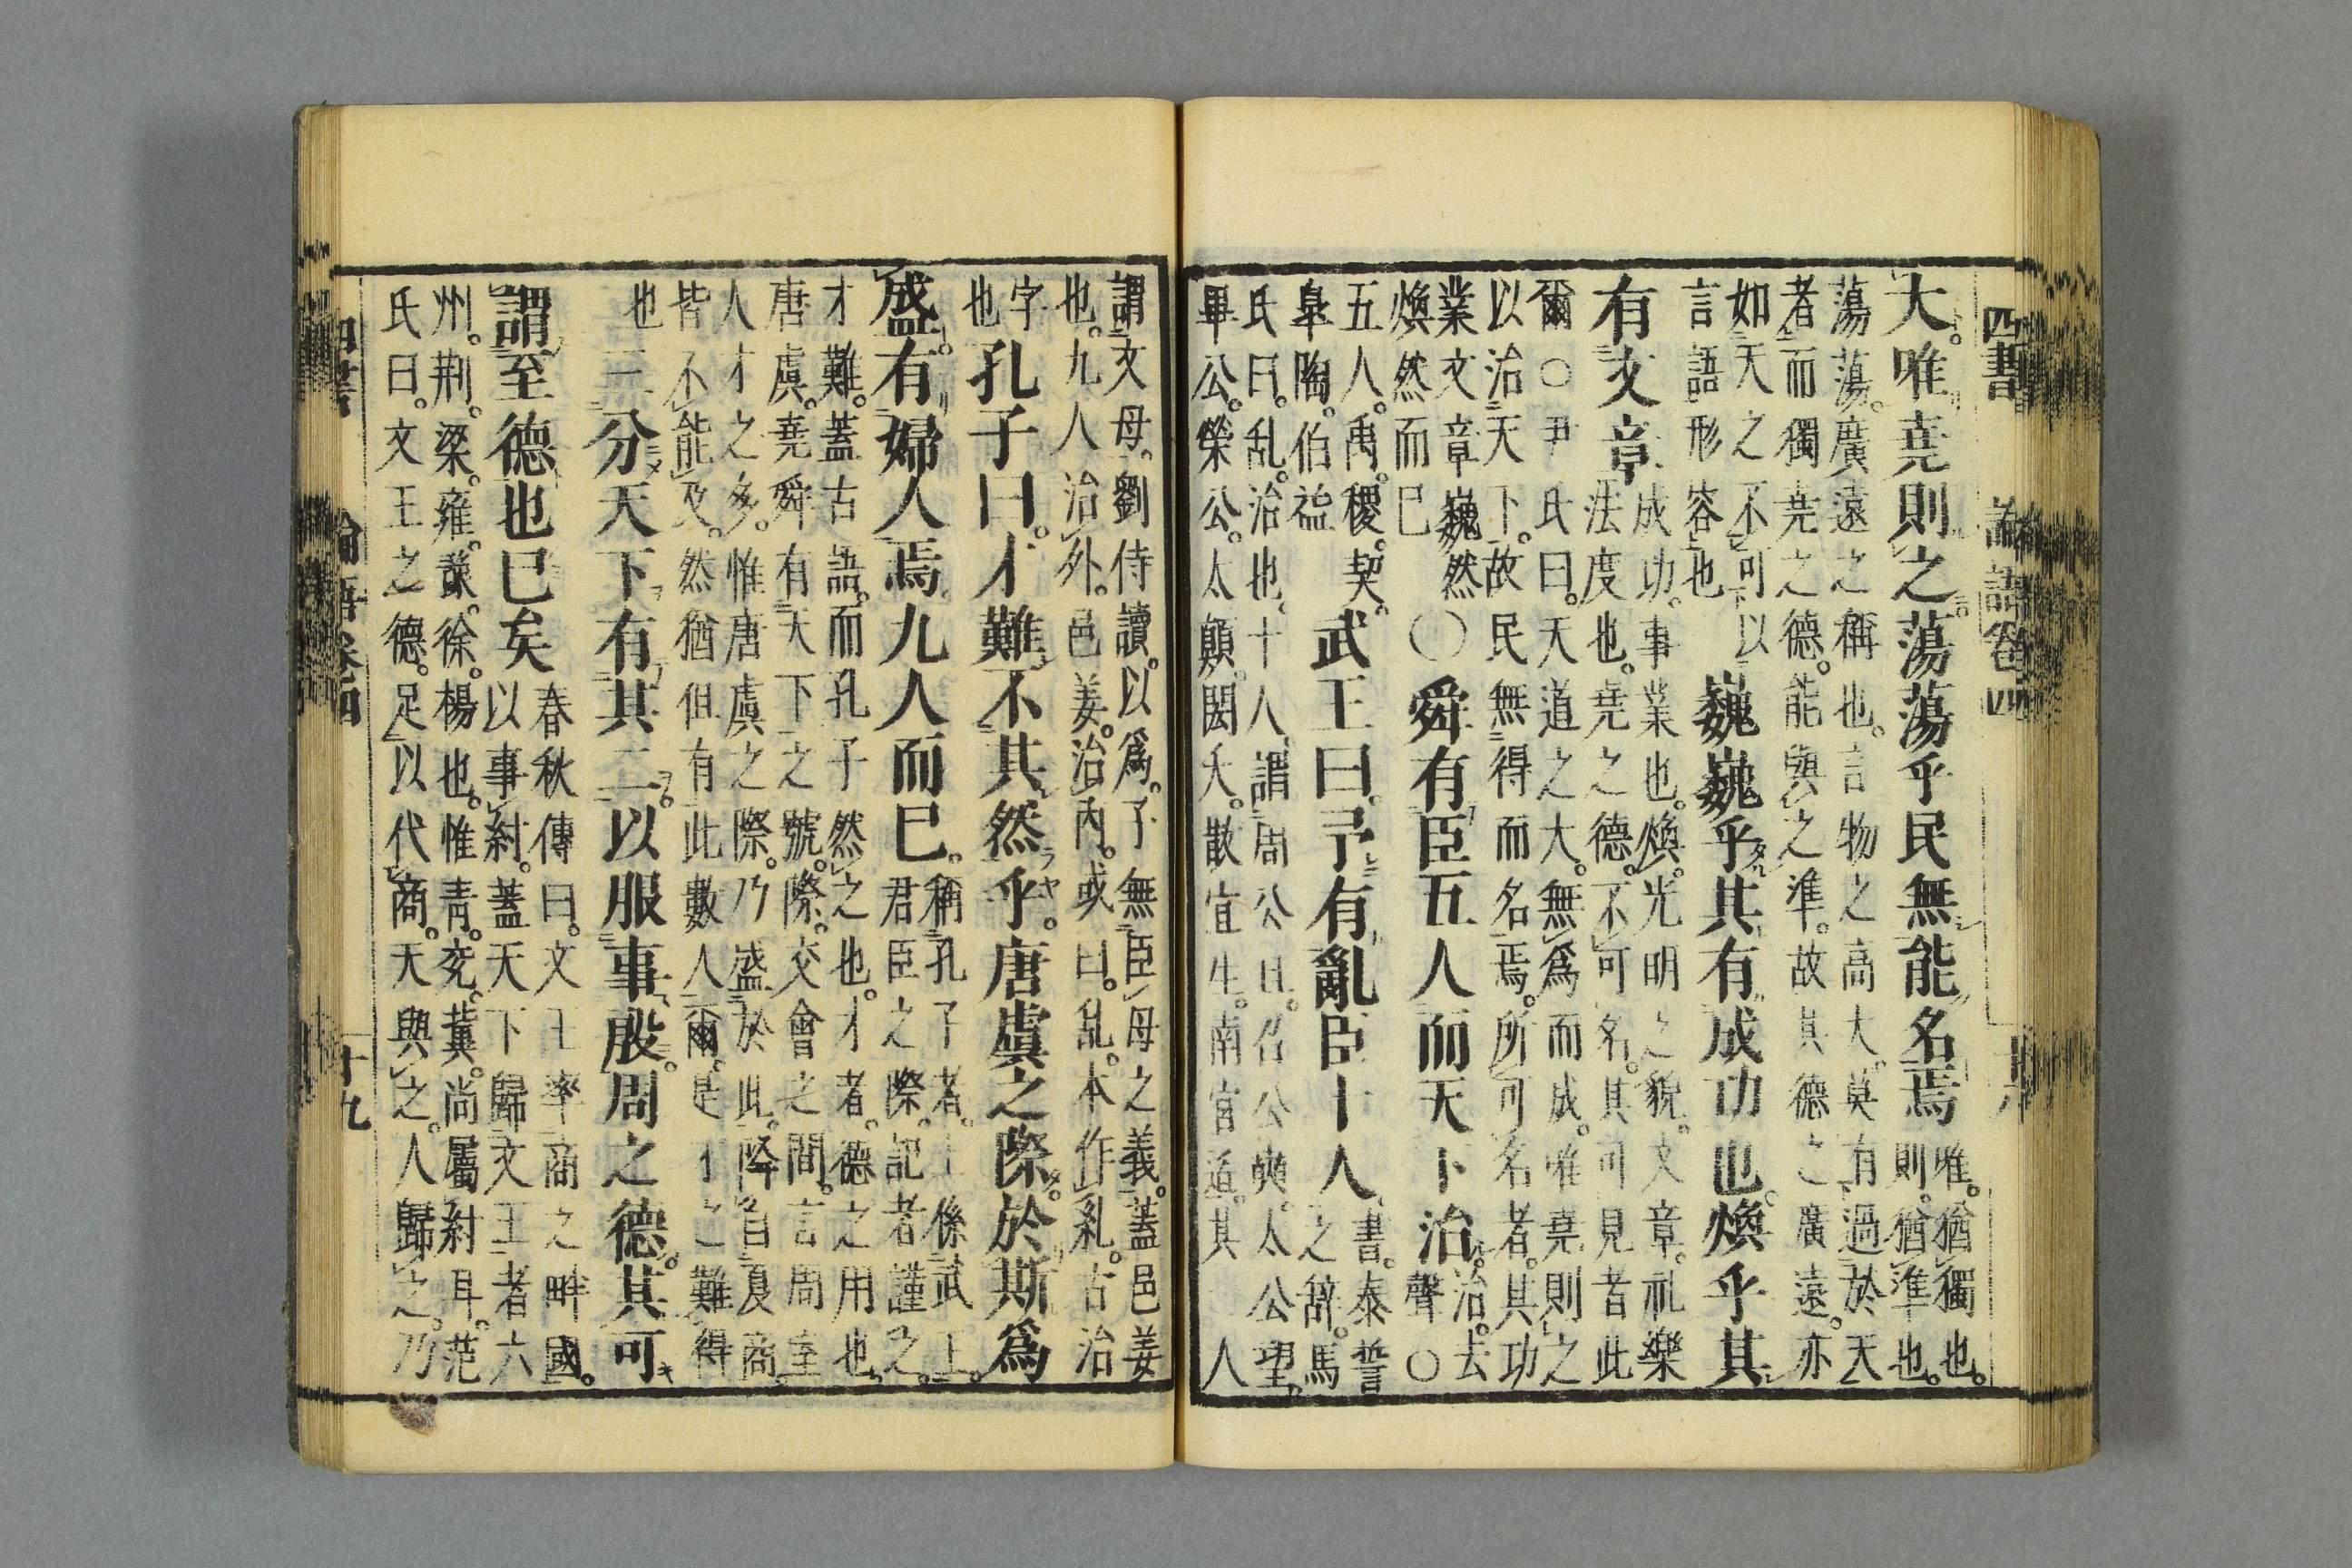 四書
論語卷四
十八
大。唯堯則之。蕩蕩乎民無能名焉
唯。猶獨也。
則。猶準也。
蕩蕩。廣遠之稱也。言物之高大。莫有過於天
者。而獨堯之德。能與之準。故其德之廣遠。亦
如天之不可以
言語形容也
巍巍乎其有成功也。煥乎其
有文章
成功。事業也。煥。光明之貌。文章。礼樂
法度也。堯之德。不可名。其可見者此
爾○尹氏曰。天道之大。無爲而成。唯堯則之
以治天下。故民無得而名焉。所可名者。其功
業文章巍然
煥然而已
○舜有臣五人而天下治。
治。去
聲○
五人。禹。稷。契。
皐陶。伯益
武王曰。予有亂臣十人、
書。泰誓
之辞。馬
氏曰。乱。治也。十人、謂周公旦。召公奭。太公望。
畢公。榮公。太顚。閎夭。散宜生。南宮适。其一人
謂文母。劉侍讀。以爲。子無臣母之義。蓋邑姜
也。九人治外。邑姜。治内。或曰。乱。本作乿。古治
字
也
孔子曰。才難。不其然乎。唐虞之際。於斯爲
盛。有婦人焉。九人而已。
稱孔子者。上係武王。
君臣之際。記者謹之。
才難。蓋古語。而孔子然之也。才者。德之用也。
唐虞。堯舜有天下之號。際。交會之間。言周室
人才之多。惟唐虞之際。乃盛於此。降自夏商。
皆不能及。然猶但有此數人爾。是才之難得
也
三分天下有其二。以服事殷。周之德。其可
謂至德也已矣
春秋傳曰。文王率商之畔國。
以事紂。蓋天下歸文王者六
州。荆。梁。雍。豫。徐。楊也。惟青。兗。冀。尚屬紂耳。范
氏曰。文王之德。足以代商。天與之。人歸之。乃
四書
論語卷四
十九